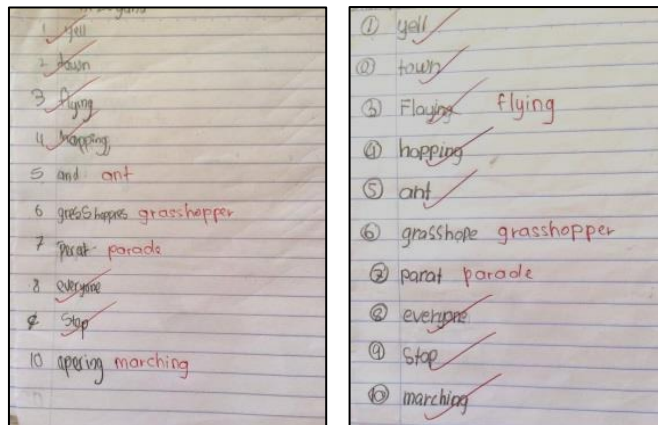 1 yell
2 down
3 flying
4 hopping
5 and ant
6 gresshoppres grasshopper
7 parat parade
8 everyone
9 Stop
10 apering marching
① yell
② town
③ Flaying flying
④ hopping
⑤ ant
⑥ grasshope grasshopper
⑦ parat parade
⑧ everyone
⑨ Stop
⑩ marching